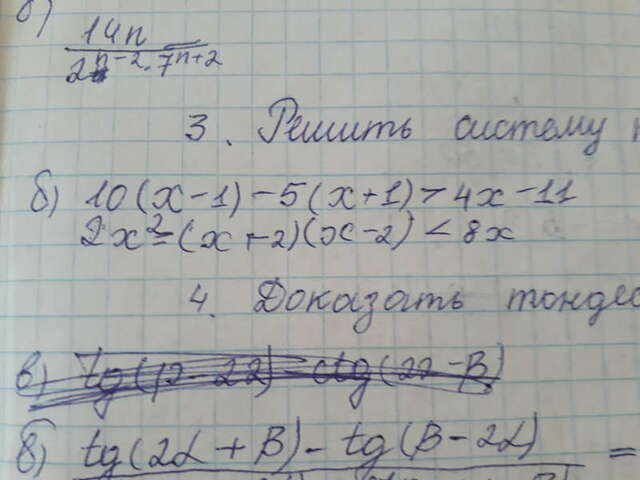 б)
14n
2n-2·7n+2
3. Решить систему
б) 10(x-1)-5(x+1)>4x-11
2x²-(x+2)(x-2)<8x
4. Доказать тождес
в)
в) tg(2α+β)-tg(β-2α) =